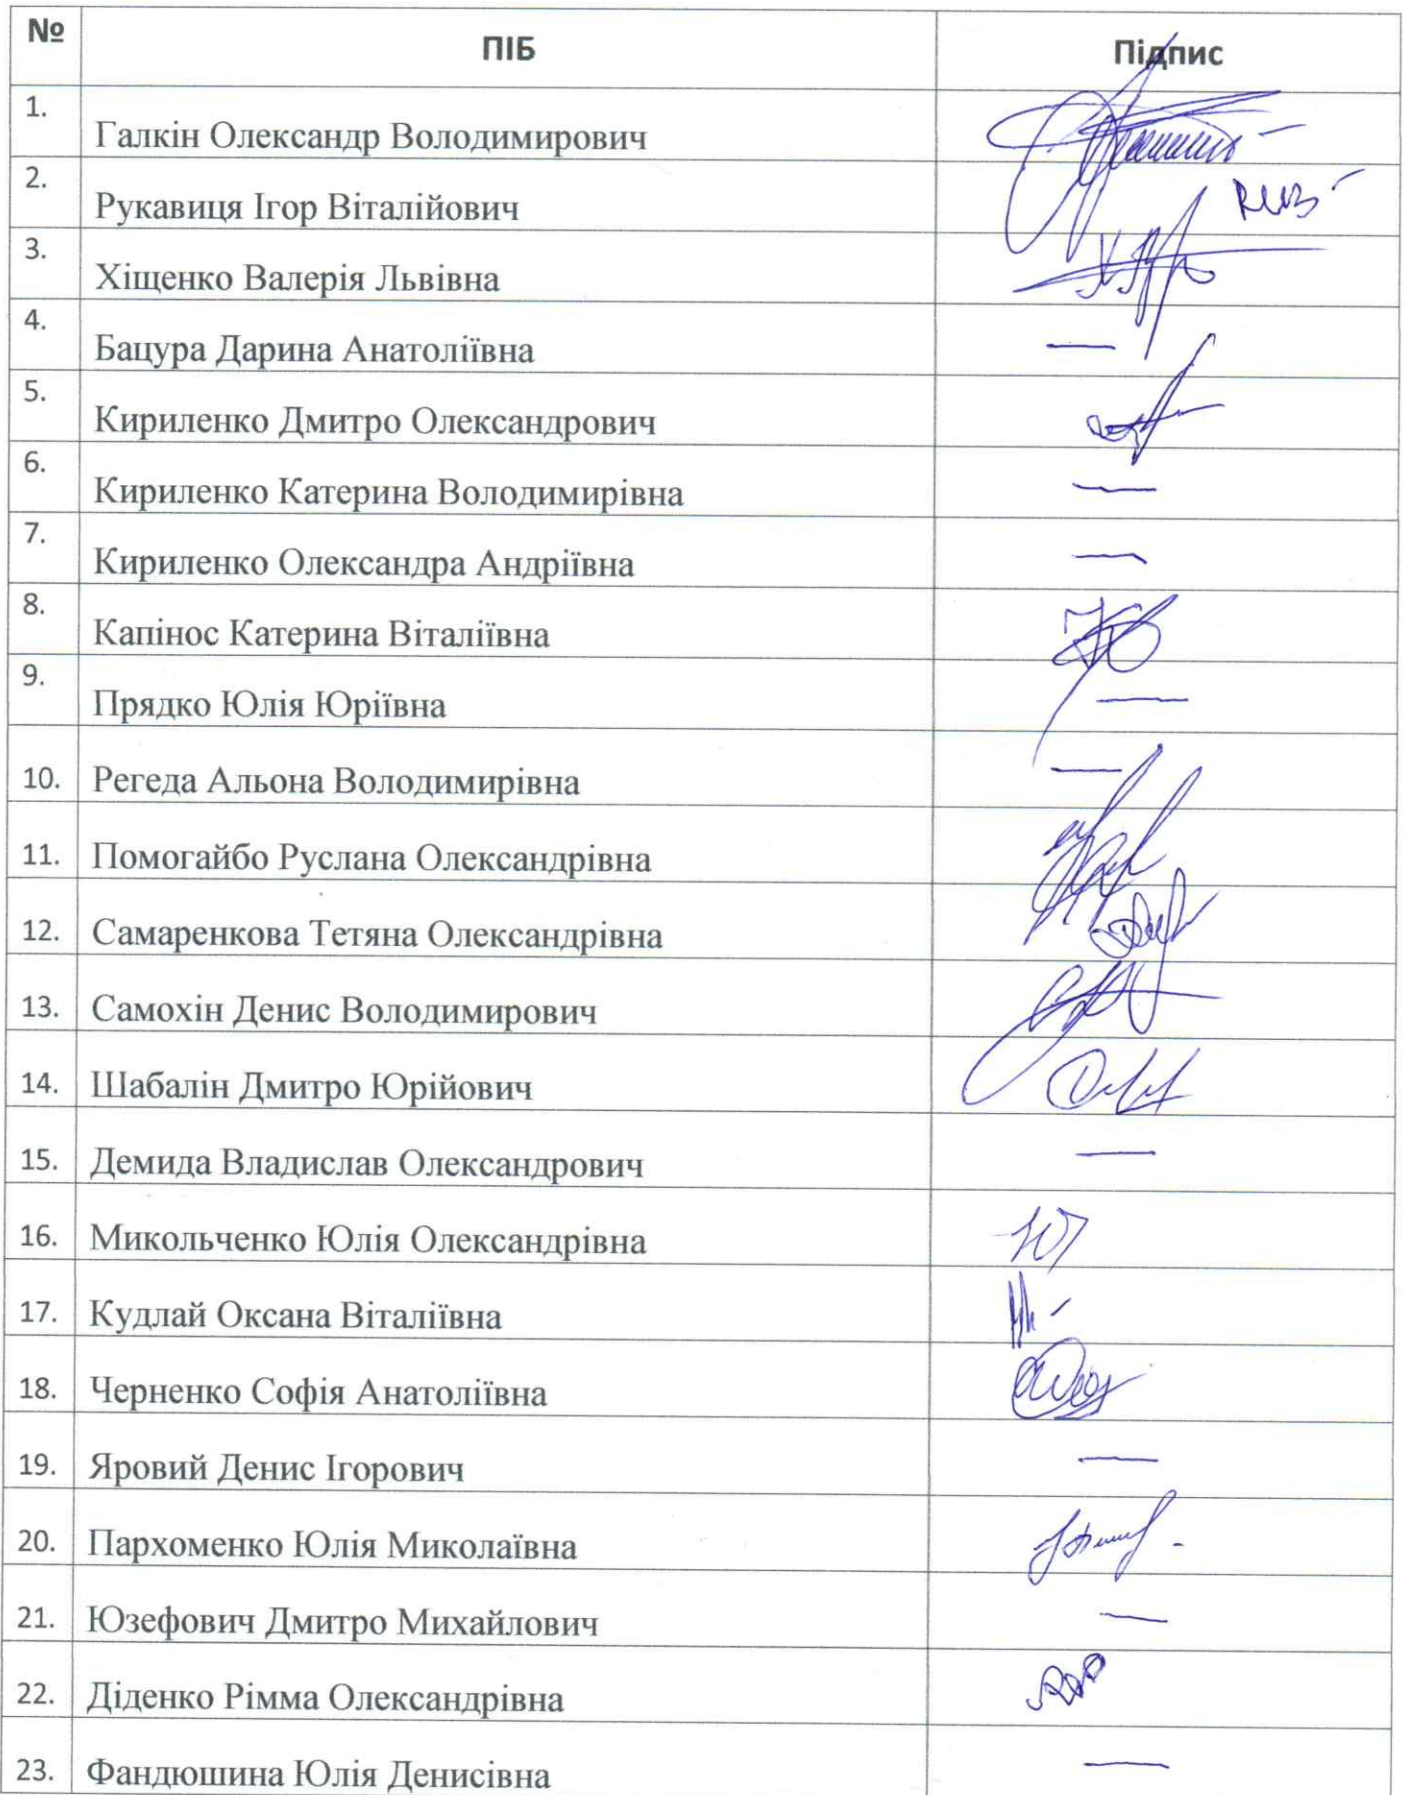 № ПІБ Підпис
1. Галкін Олександр Володимирович
2. Рукавиця Ігор Віталійович
3. Хіщенко Валерія Львівна
4. Бацура Дарина Анатоліївна —
5. Кириленко Дмитро Олександрович
6. Кириленко Катерина Володимирівна —
7. Кириленко Олександра Андріївна —
8. Капінос Катерина Віталіївна
9. Прядко Юлія Юріївна —
10. Регеда Альона Володимирівна —
11. Помогайбо Руслана Олександрівна
12. Самаренкова Тетяна Олександрівна
13. Самохін Денис Володимирович
14. Шабалін Дмитро Юрійович
15. Демида Владислав Олександрович —
16. Микольченко Юлія Олександрівна
17. Кудлай Оксана Віталіївна
18. Черненко Софія Анатоліївна
19. Яровий Денис Ігорович —
20. Пархоменко Юлія Миколаївна
21. Юзефович Дмитро Михайлович —
22. Діденко Рімма Олександрівна
23. Фандюшина Юлія Денисівна —